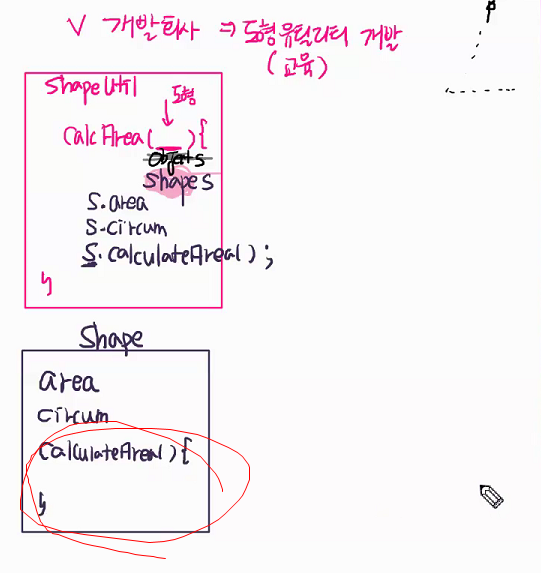 V 개발회사 ⇒ 도형유틸리티 개발
(교육)
ShapeUtil
도형
CalcArea(__){
Object s
Shape s
S.area
S.circum
S.calculateArea();
}
Shape
area
circum
CalculateArea(){
}